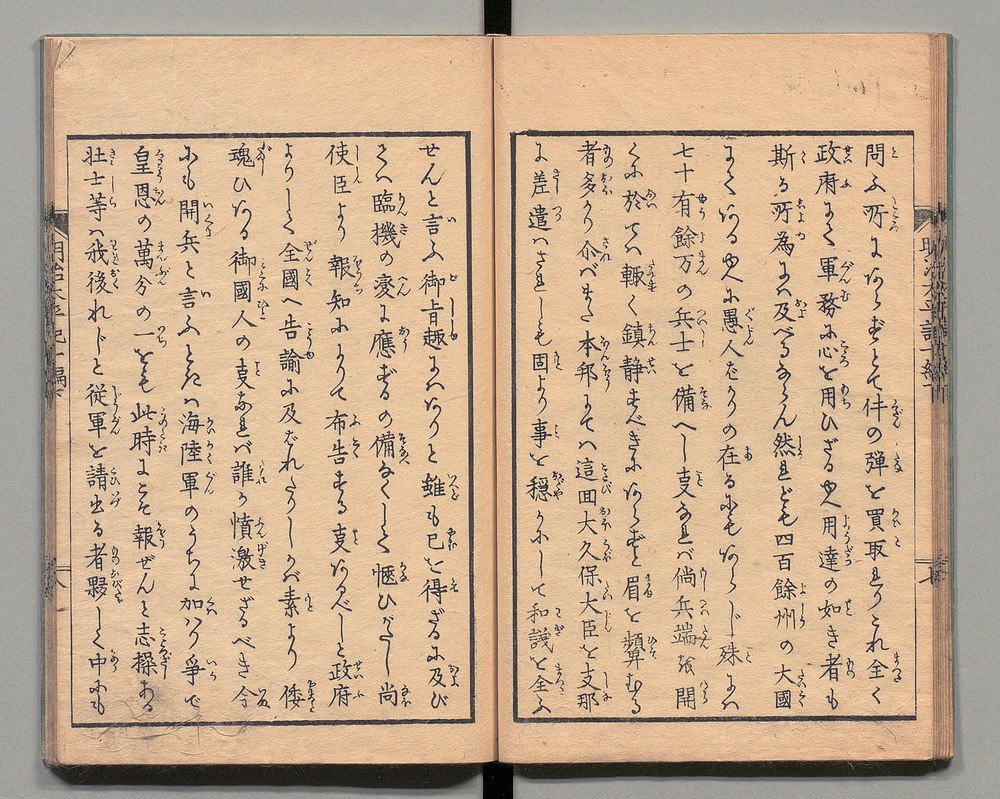 問ふ所にあらずとて件の弾を買取りしとこれ全く
政府にて軍務に心を用ひざる史用達の如き者も
斯る所為には及べるならん然れども四百餘州の大國
にてある史に愚人ばかりの在るにもあらじ殊には
七十有餘万の兵士を備へし支なれば倘兵端を開
くに於ては輙く鎮静すべきにあらずと眉を顰むる
者多かり尒べまた本邦にては這回大久保大臣を支那
に差遣はされしも固より事を穏かにして和議を全ふ
せんと言ふ御旨趣にはありと雖も已を得ざるに及び
ては臨機の変に應ずるの備なくしと愜ひがたし尚
使臣より報知によりて布告する支あるべしと政府
よりして全國へ告諭に及ばれたりしかば素より倭
魂ひある御國人の支なれば誰か憤激せざるべき今
にも開兵と言ふときは海陸軍のうちに加はり争で
皇恩の萬分の一をも此時にこそ報ぜんと志操ある
壮士等は我後れじと従軍を請出る者夥しく中にも
明治太平記十編下